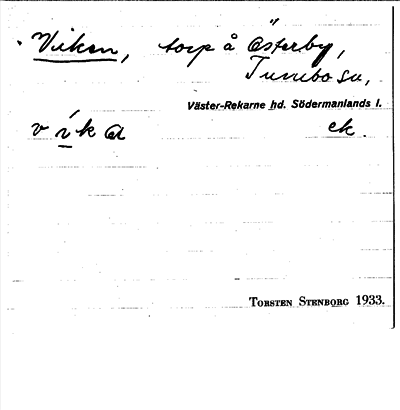 Viken, torp å Österby,
Tumbo sn,
Väster-Rekarne hd. Södermanlands l.
v í k a ek.
Torsten Stenborg 1933.